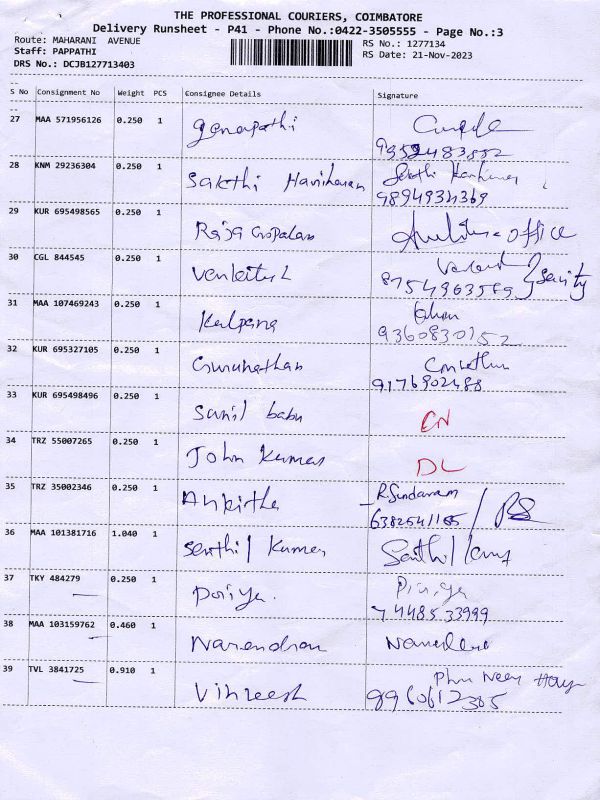 THE PROFESSIONAL COURIERS, COIMBATORE
Delivery Runsheet - P41 - Phone No.:0422-3505555 - Page No.:3
Route: MAHARANI AVENUE
RS No.: 1277134
Staff: PAPPATHI
RS Date: 21-Nov-2023
DRS No.: DCJB127713403
S No Consignment No Weight PCS Consignee Details Signature
27 MAA 571956126 0.250 1 Ganapathi
9952483852
28 KNM 29236304 0.250 1 Sakthi Hariharan
9894934369
29 KUR 695498565 0.250 1 Raja Gopalan office
30 CGL 844545 0.250 1 Venkatesh
8754963589
31 MAA 107469243 0.250 1 Kalpana
9360830152
32 KUR 695327105 0.250 1 Gurunathan
9176902488
33 KUR 695498496 0.250 1 Sunil babu CN
34 TRZ 55007265 0.250 1 John Kumar DL
35 TRZ 35002346 0.250 1 Ankitha R.Sundaram
6382541165 / RS
36 MAA 101381716 1.040 1 Senthil Kumar
37 TKY 484279 0.250 1 Priya
7448533999
38 MAA 103159762 0.460 1 Narendran
39 TVL 3841725 0.910 1
9960612365